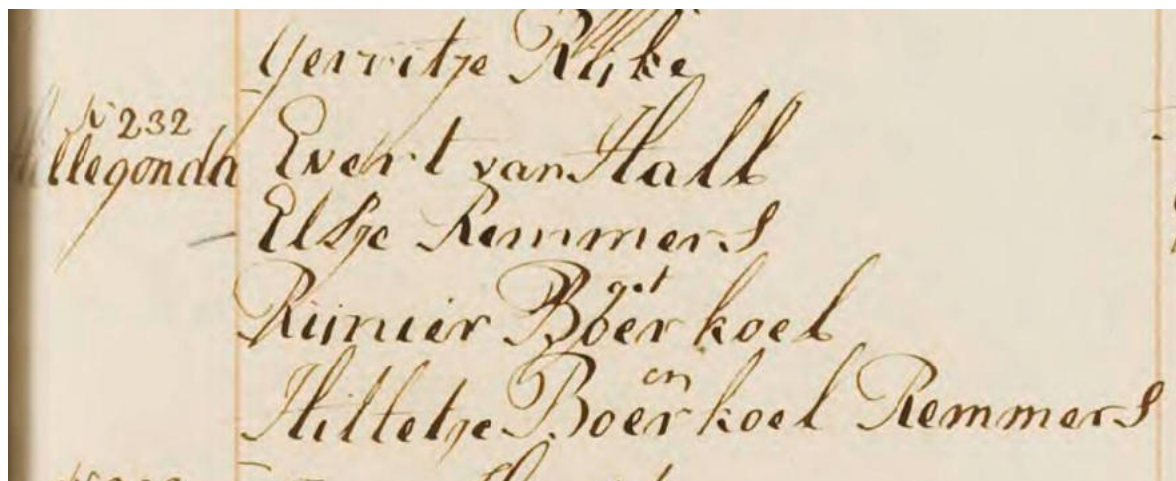 Gerritje Rijke
N 232
Hillegonda Evert van Hall
Elsje Remmers
Rijnier Boerkoel
get
Hilletje Boerkoel Remmers
en